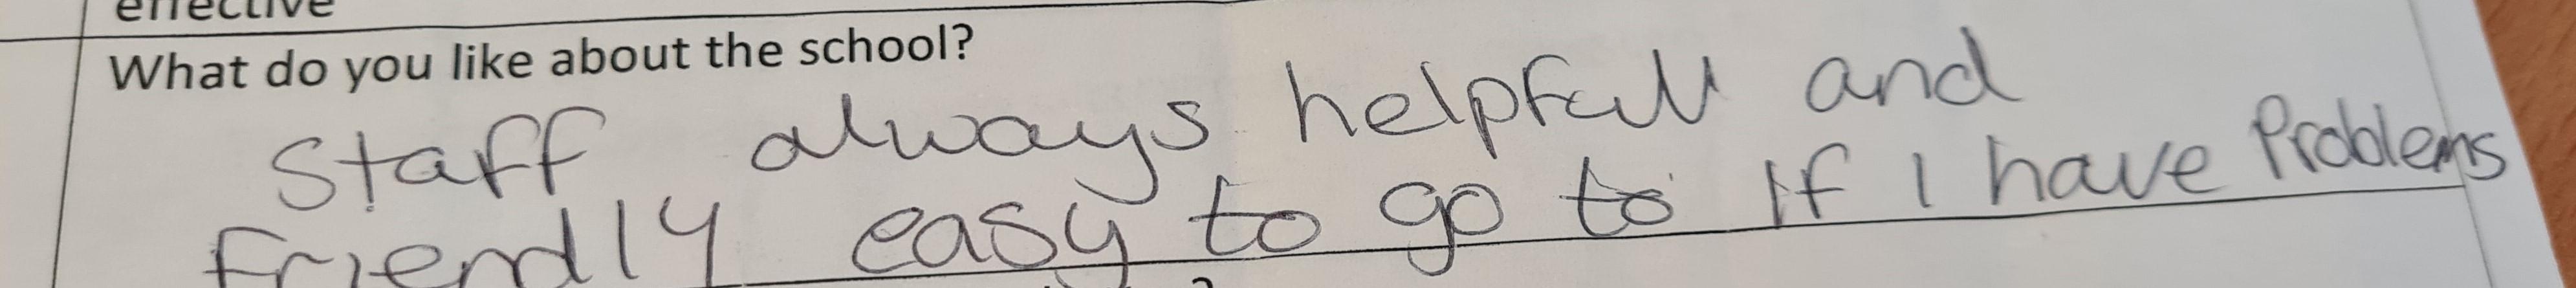 effective
What do you like about the school?
Staff always helpfull and
friendly easy to go to If I have Problems